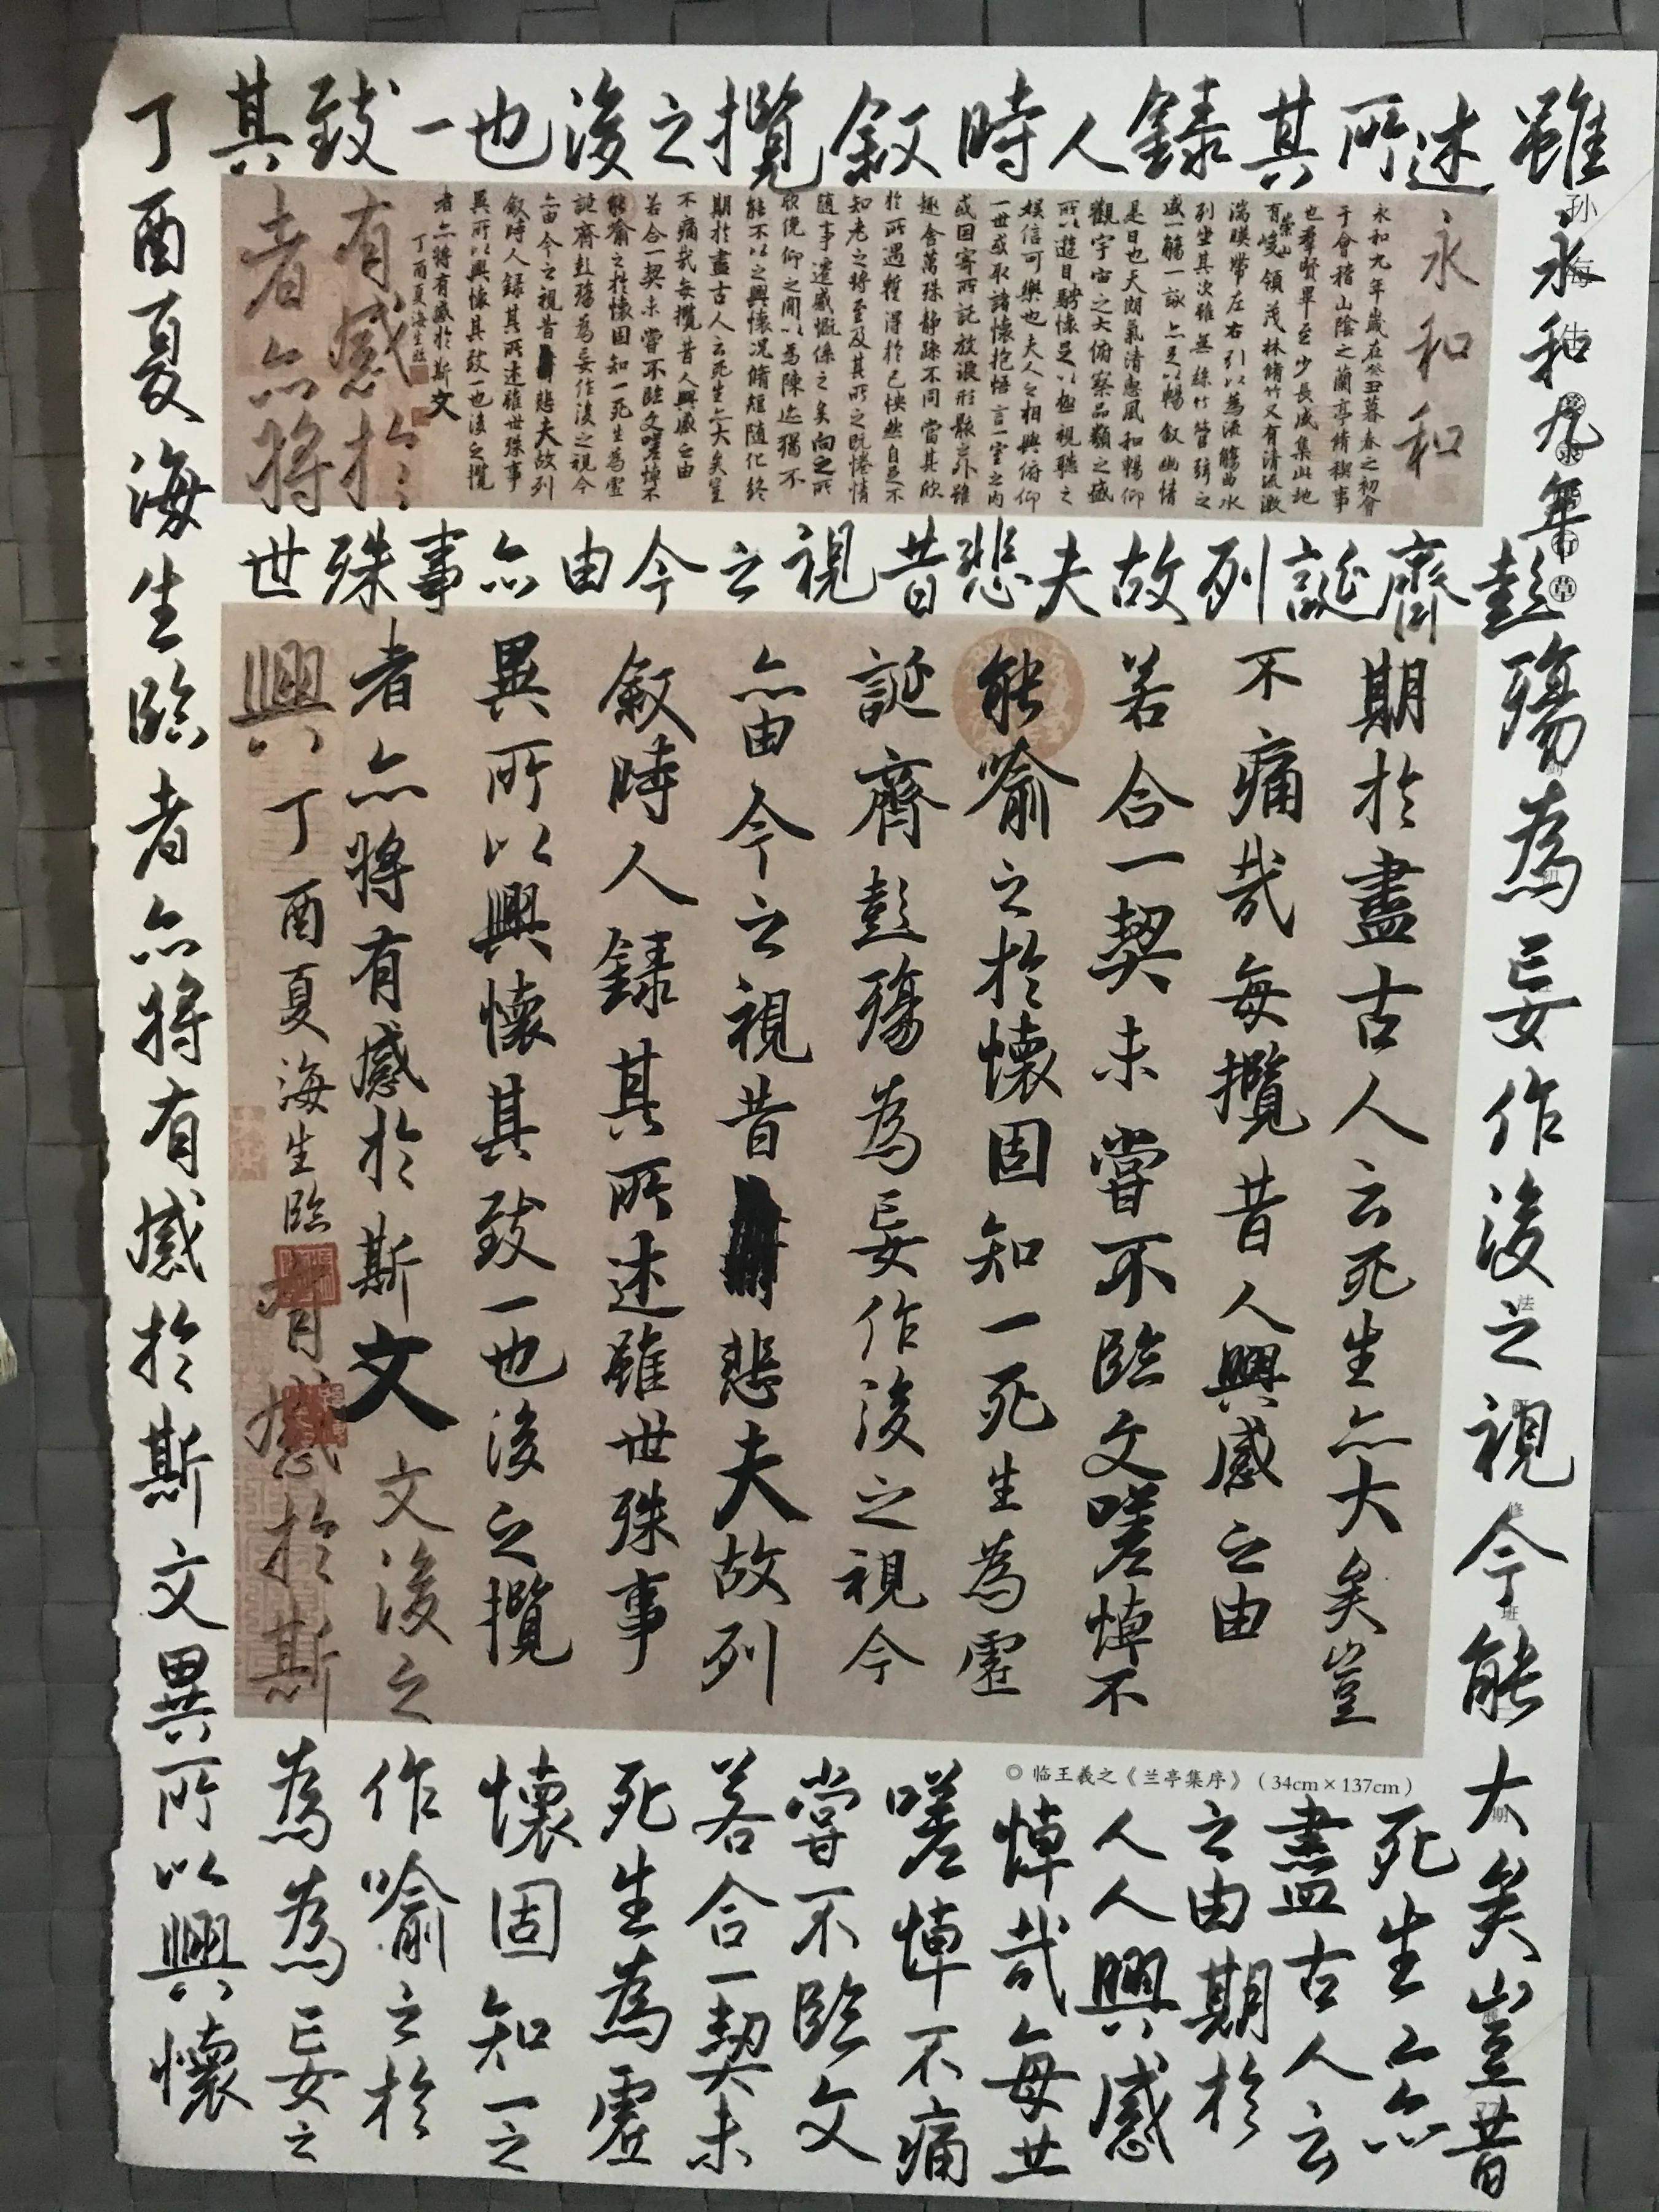 雖永和九年彭殤為妄作後之視今能大矣豈昔
述所其錄人時敘攬之後也一致其
永和
永和九年歲在癸丑暮春之初會
于會稽山陰之蘭亭脩稧事
也羣賢畢至少長咸集此地
有崇山峻領茂林脩竹又有清流激
湍暎帶左右引以為流觴曲水
列坐其次雖無絲竹管弦之
盛一觴一詠亦足以暢敘幽情
是日也天朗氣清惠風和暢仰
觀宇宙之大俯察品類之盛
所以遊目騁懷足以極視聽之
娛信可樂也夫人之相與俯仰
一世或取諸懷抱悟言一室之內
或因寄所託放浪形骸之外雖
趣舍萬殊靜躁不同當其欣
於所遇暫得於己怏然自足不
知老之將至及其所之既惓情
隨事遷感慨係之矣向之所
欣俛仰之間以為陳迹猶不
能不以之興懷況脩短隨化終
期於盡古人云死生亦大矣豈
不痛哉每攬昔人興感之由
若合一契未嘗不臨文嗟悼不
能喻之於懷固知一死生為虛
誕齊彭殤為妄作後之視今
亦由今之視昔悲夫故列
敘時人錄其所述雖世殊事
異所以興懷其致一也後之攬
者亦將有感於斯文
丁酉夏海生臨
有感於
者亦將
齊誕列故夫悲昔視之今由亦事殊世
期於盡古人云死生亦大矣豈
不痛哉每攬昔人興感之由
若合一契未嘗不臨文嗟悼不
能喻之於懷固知一死生為虛
誕齊彭殤為妄作後之視今
亦由今之視昔悲夫故列
敘時人錄其所述雖世殊事
異所以興懷其致一也後之攬
者亦將有感於斯文文後之
興丁酉夏海生臨有感於斯
◎ 临王羲之《兰亭集序》（34cm×137cm）
死生亦
盡古人云
之由期於
人人興感
悼哉每世
嗟悼不痛
嘗不臨文
若合一契未
死生為虛
懷固知一之
作喻之於
為為妄之
丁酉夏海生臨者亦將有感於斯文異所以興懷